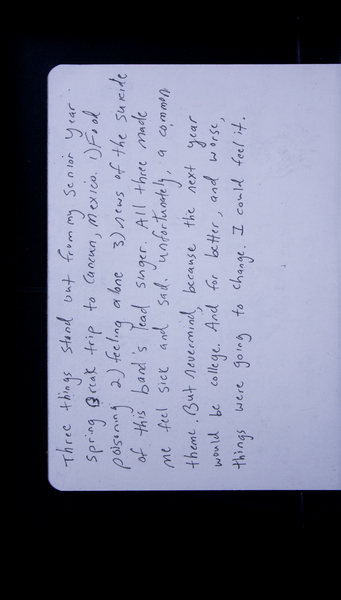 Three things stand out from my senior year
spring Break trip to Cancun, Mexico. 1) Food
poisoning 2) feeling alone 3) news of the suicide
of this band's lead singer. All three made
me feel sick and sad. unfortunately, a common
theme. But nevermind, because the next year
would be college. And for better, and worse,
things were going to change. I could feel it.